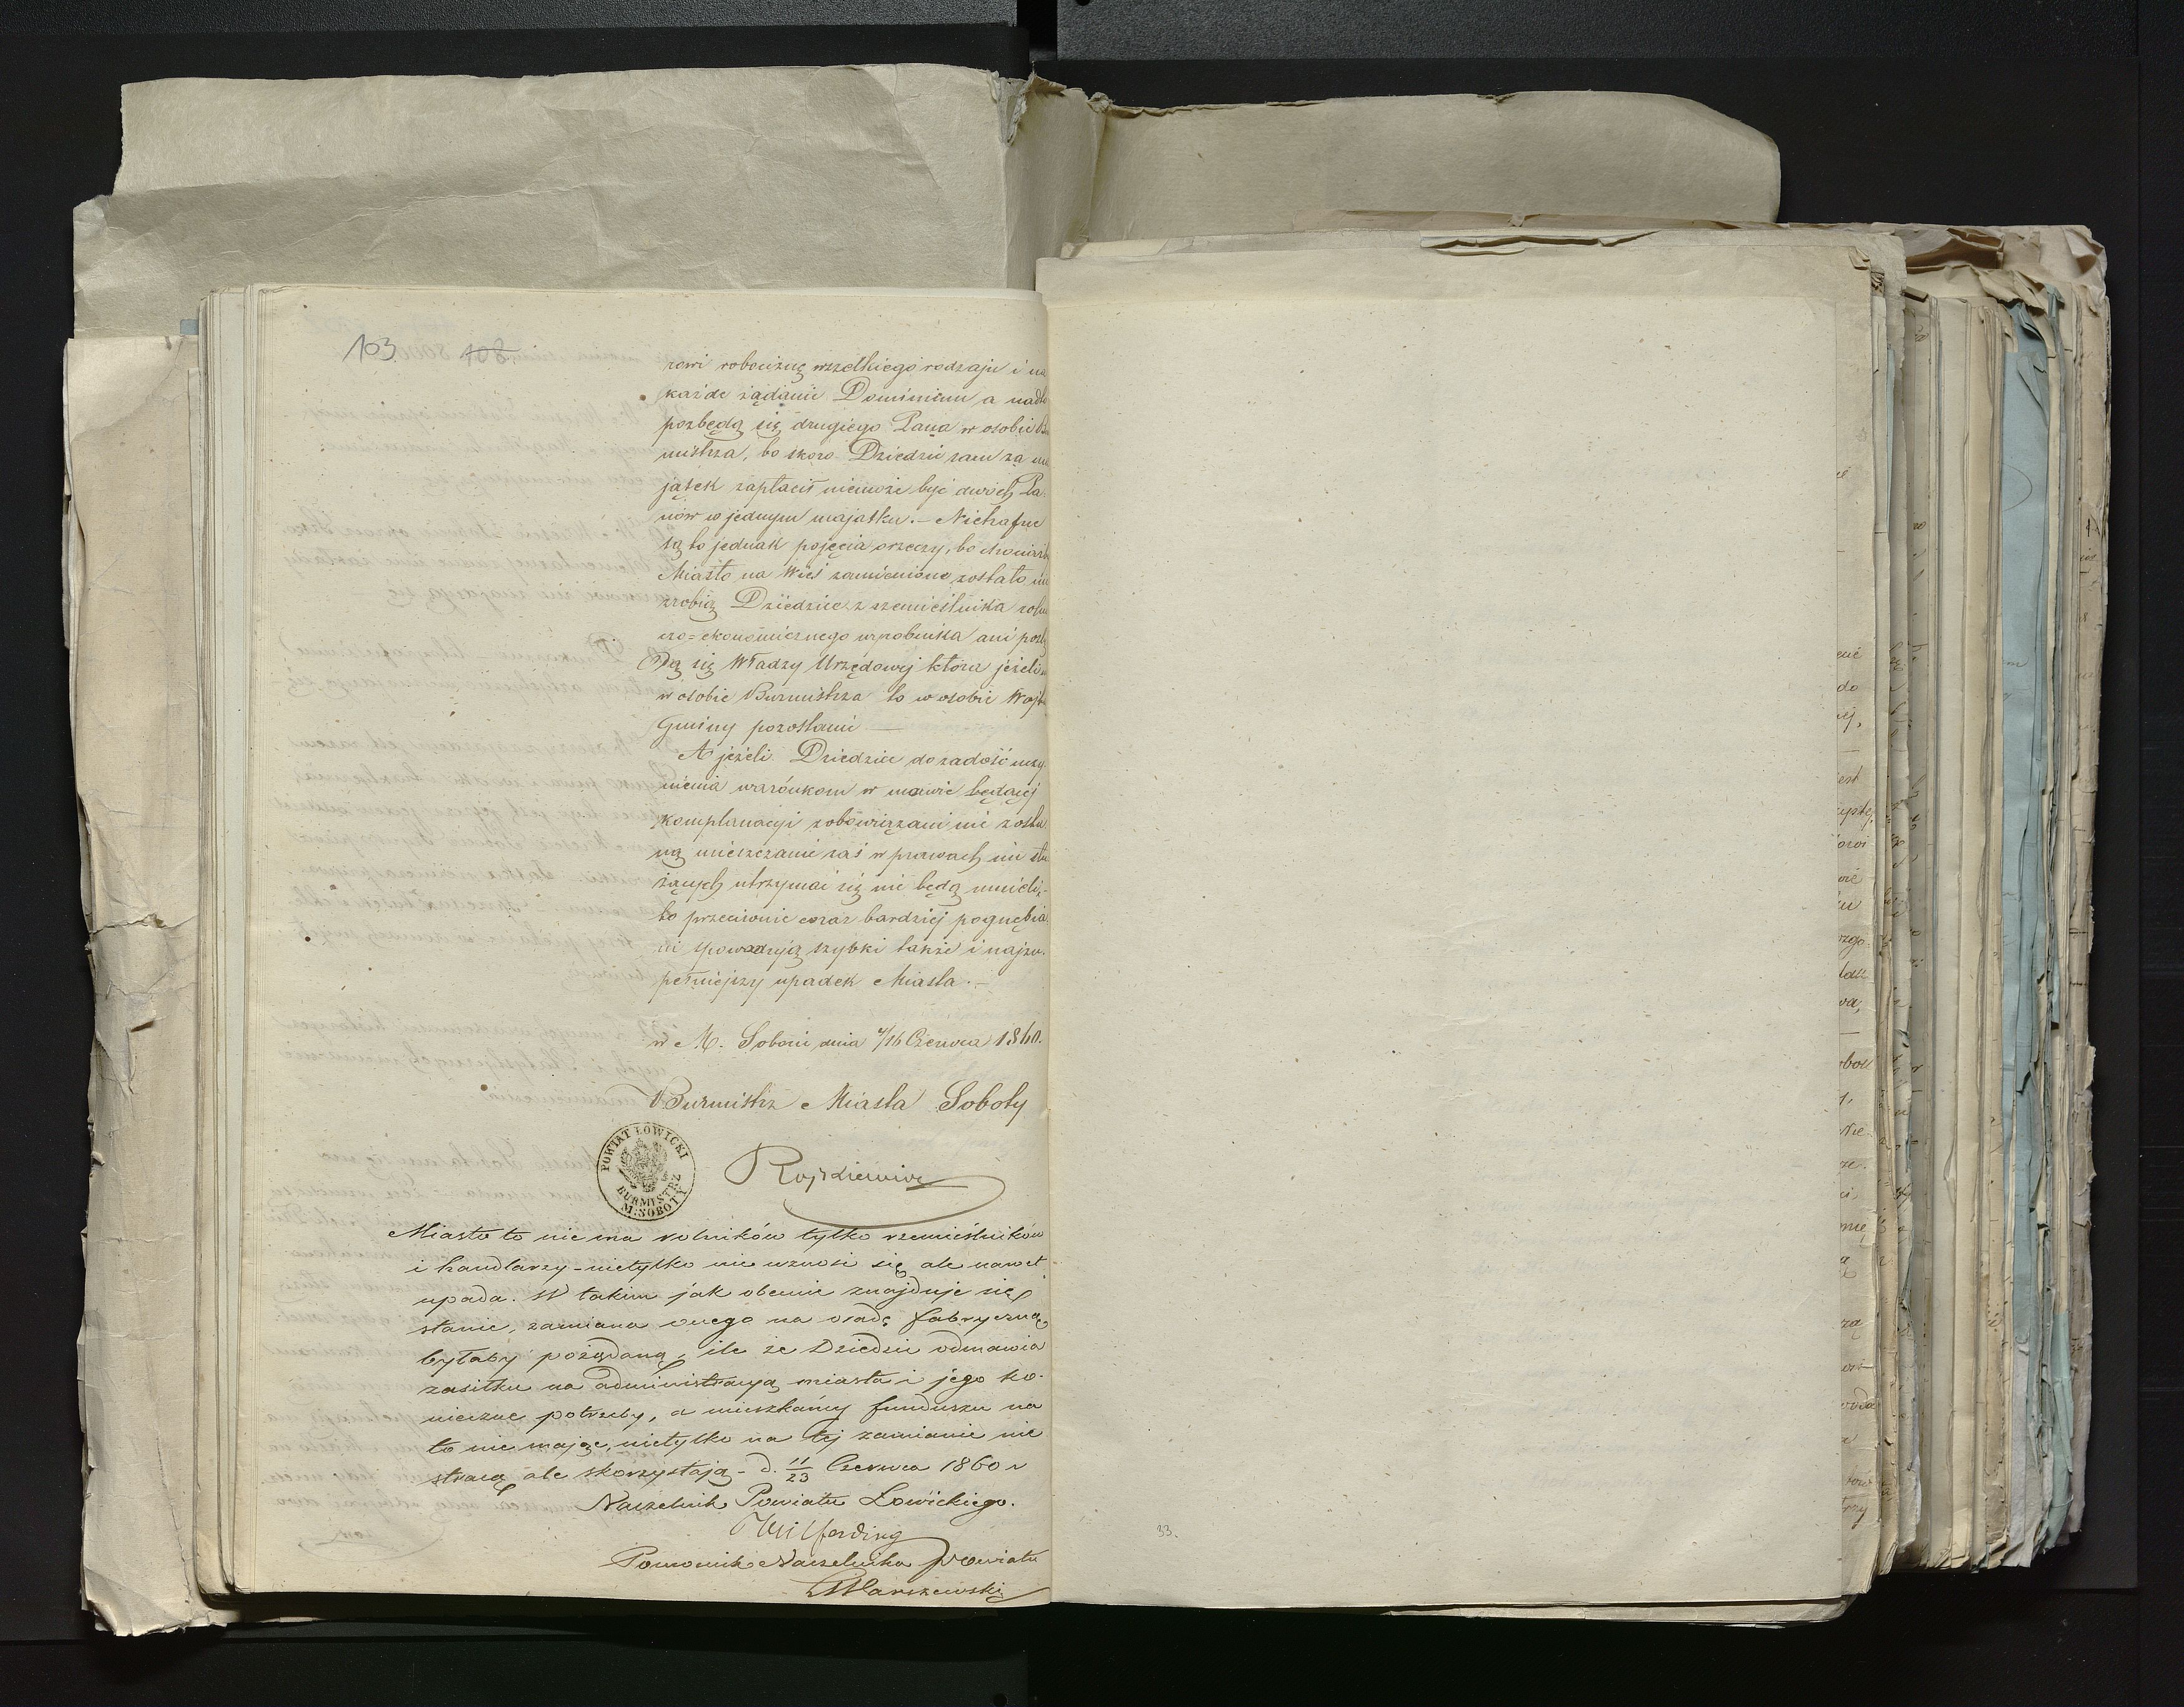 103. 108.
rowi robociznę wszelkiego rodzaju i na
każde żądanie Dominium a nadto
pozbędą się drugiego Pana w osobie Bur
mistrza, bo skoro Dziedzic sam za ma
jątek zapłacił niemoże być dwóch Pa-
nów w jednym majątku. — Nietrafne
są to jednak pojęcia o rzeczy, bo chociażby
Miasto na Wieś zamienione zostało nie
zrobią Dziedzice z rzemieślnika rolni
czo=ekonomicznego wyrobnika ani pozbę
dą się Władzy Urzędowej która jeżeli nie
w osobie Burmistrza to w osobie Wójta
Gminy pozostanie —
A jeżeli Dziedzice do zadość uczy-
nienia warunkom w mowie będącej
komplanacyi zobowiązani nie zosta
ną mieszczanie zaś w prawach im słu
żących utrzymać się nie będą umieli,-
to przeciwnie coraz bardziej pognębia-
ni spowodują szybki także i najzu-
pełniejszy upadek Miasta. —
w M. Sobocie dnia 4/16 Czerwca 1860.
Burmistrz Miasta Soboty
POWIAT ŁOWICKI
BURMISTRZ
M: SOBOTY
Miasto to nie ma rolników tylko rzemieślników
i handlarzy - nietylko nie wznosi się ale nawet
upada. W takim jak obecnie znajduje się
stanie, zamiana onego na osadę fabryczną
byłaby pożądaną, ile że Dziedzic odmawia
zasiłku na administracyą miasta i jego ko-
nieczne potrzeby, a mieszkańcy funduszu na
to nie mając, nietylko na tej zamianie nie
stracą ale skorzystają - d. 11/23 Czerwca 1860 r
Naczelnik Powiatu Łowickiego.
Pomocnik Naczelnika Powiatu
33.